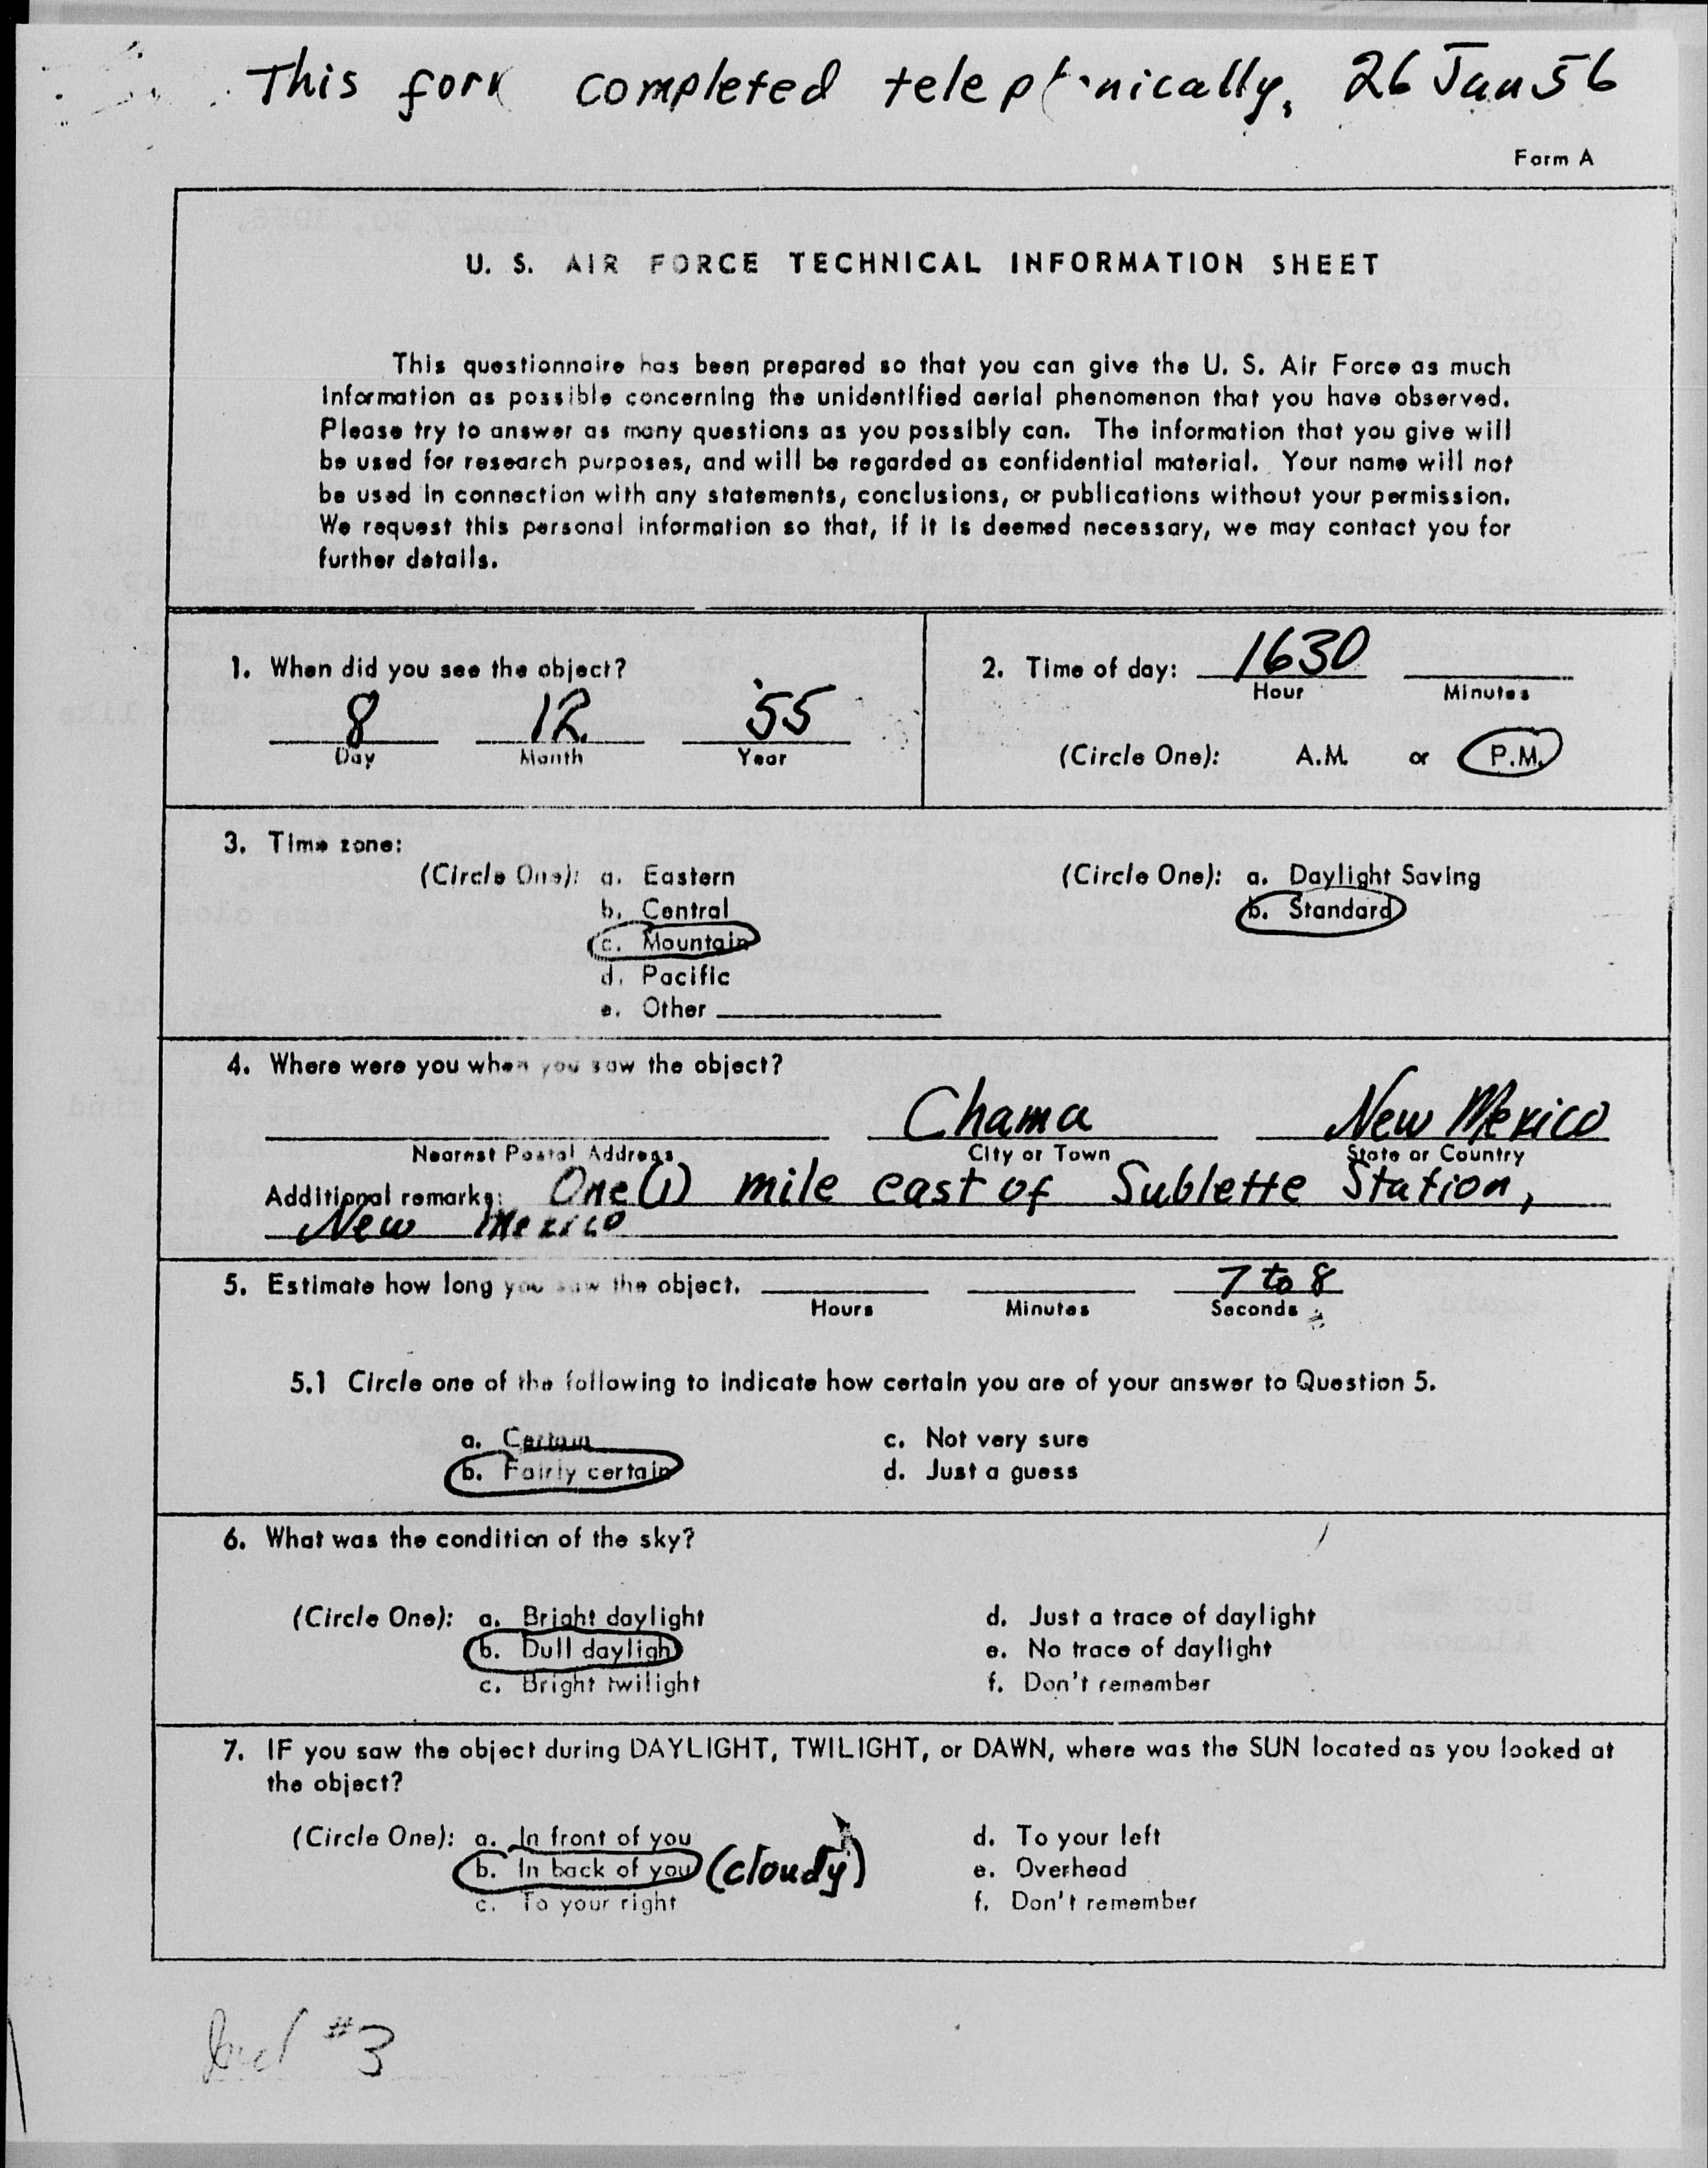 This form completed telephonically, 26 Jan 56
Form A
U. S. AIR FORCE TECHNICAL INFORMATION SHEET
This questionnaire has been prepared so that you can give the U. S. Air Force as much
information as possible concerning the unidentified aerial phenomenon that you have observed.
Please try to answer as many questions as you possibly can. The information that you give will
be used for research purposes, and will be regarded as confidential material. Your name will not
be used in connection with any statements, conclusions, or publications without your permission.
We request this personal information so that, if it is deemed necessary, we may contact you for
further details.
1. When did you see the object?
8 12 '55
Day Month Year
2. Time of day: 1630
Hour Minutes
(Circle One): A.M. or P.M.
3. Time zone:
(Circle One): a. Eastern
b. Central
c. Mountain
d. Pacific
e. Other
(Circle One): a. Daylight Saving
b. Standard
4. Where were you when you saw the object?
Chama New Mexico
Nearest Postal Address City or Town State or Country
Additional remarks: One (1) mile east of Sublette Station,
New Mexico
5. Estimate how long you saw the object. 7 to 8
Hours Minutes Seconds
5.1 Circle one of the following to indicate how certain you are of your answer to Question 5.
a. Certain c. Not very sure
b. Fairly certain d. Just a guess
6. What was the condition of the sky?
(Circle One): a. Bright daylight d. Just a trace of daylight
b. Dull daylight e. No trace of daylight
c. Bright twilight f. Don't remember
7. IF you saw the object during DAYLIGHT, TWILIGHT, or DAWN, where was the SUN located as you looked at
the object?
(Circle One): a. In front of you d. To your left
b. In back of you (cloudy) e. Overhead
c. To your right f. Don't remember
#3